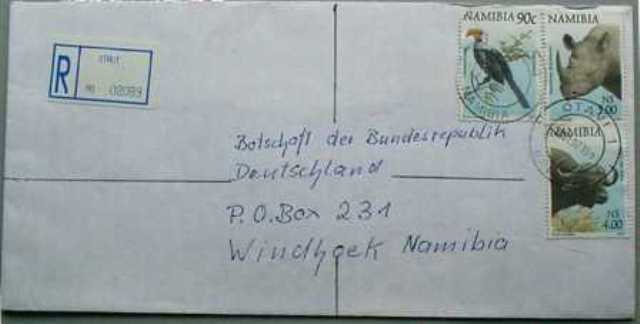 R
OTAVI
No 02089
NAMIBIA 90c
NAMIBIA
N$
2.00
NAMIBIA
N$
4.00
NAMIBIA
OTAVI
1
Botschaft der Bundesrepublik
Deutschland
P.O.Box 231
Windhoek Namibia